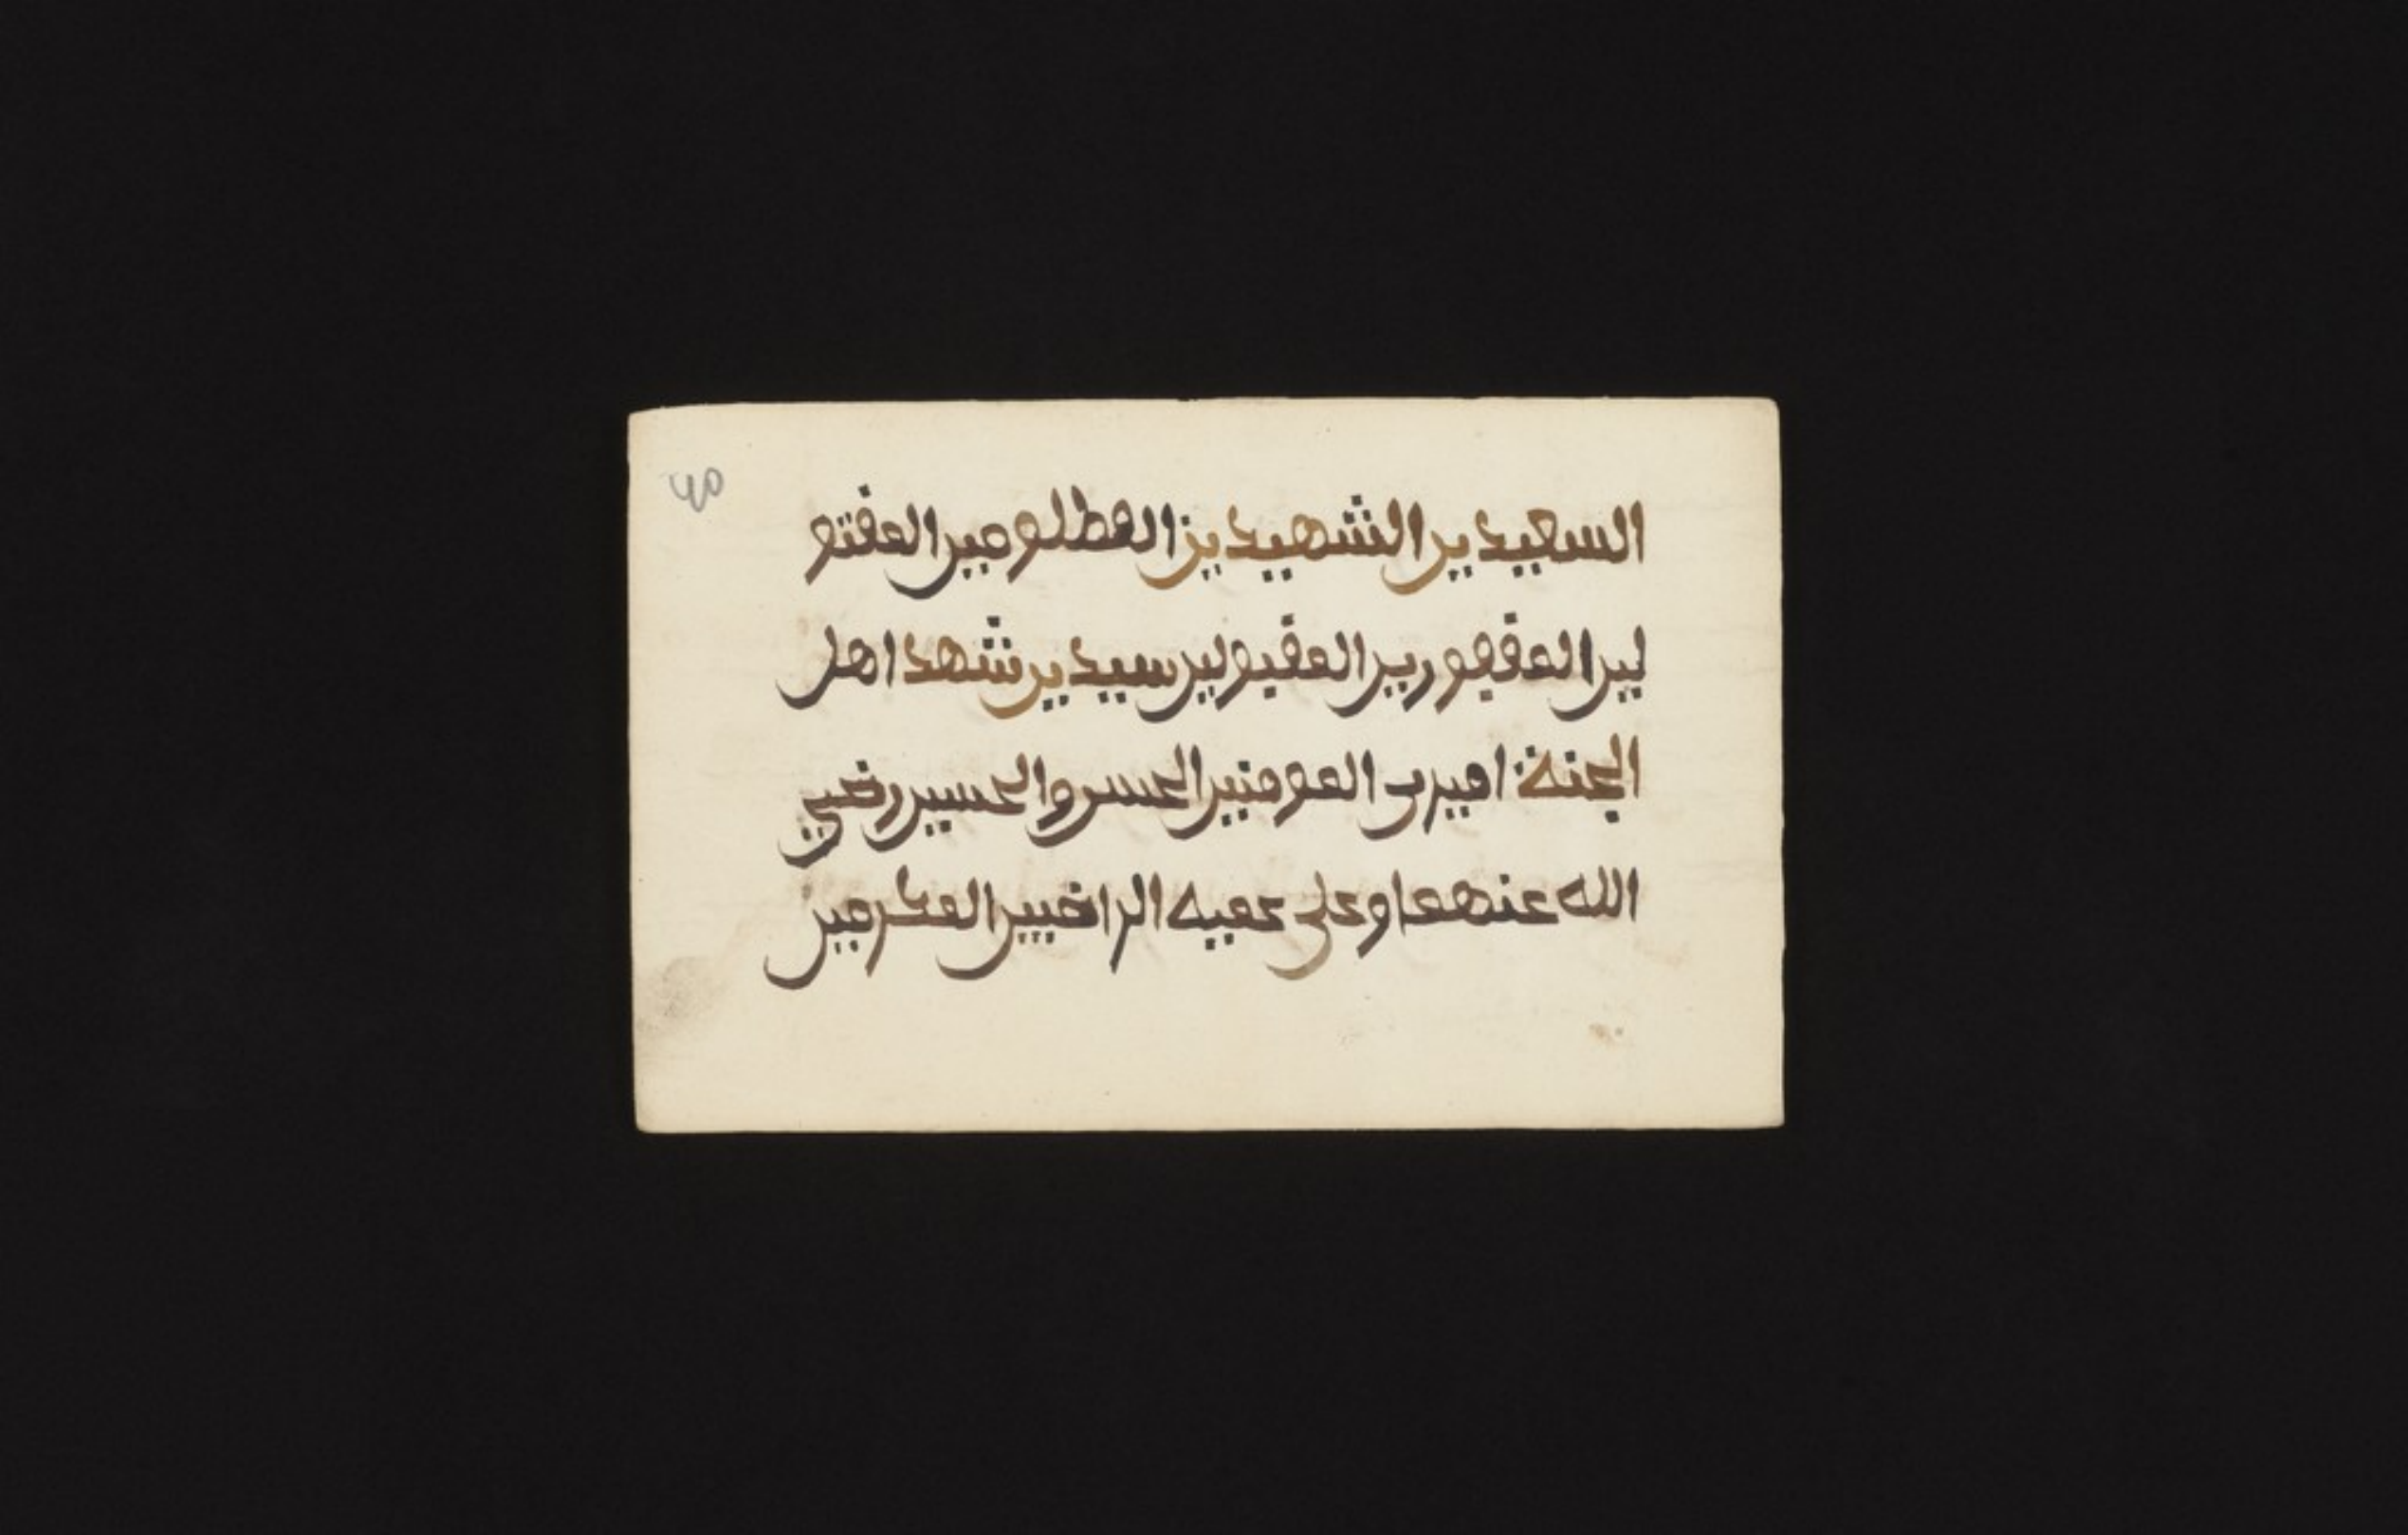 40
السعيدين الشهيدين المظلومين المقتو
لين المقهورين المقبولين سيدين شهدا اهل
الجنة اميرى المومنين الحسن والحسين رضي
الله عنهما وعلى عميه الراضيين المكرمين